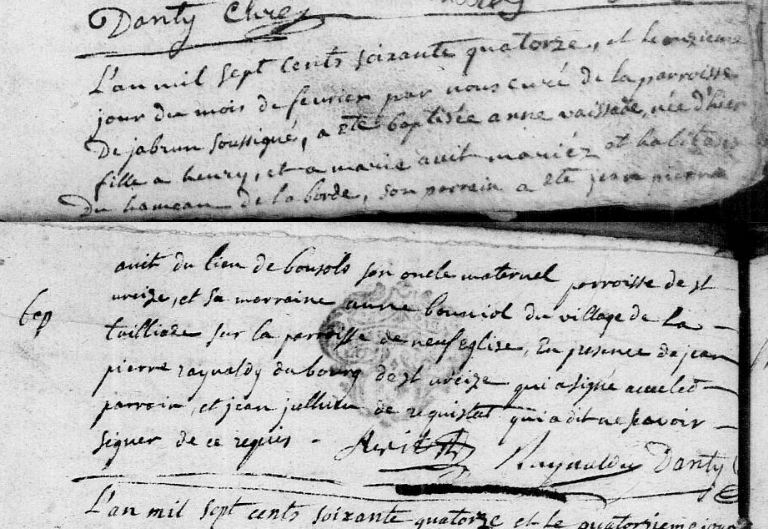 Danty Curé
L'an mil sept cents soixante quatorze, et le onzieme
jour du mois de fevrier par nous curé de la parroisse
De jabrun soussigné, a eté baptisée anne vaissade, née d'hier
fille a henry, et a marie avit mariéz et habitans
Du hameau de la borde, son parrain a eté jean pierre
avit du lieu de bousols son oncle maternel parroisse de st
urcize, et sa marraine anne bouniol du village de la
tailliade sur la parroisse de neuféglise, En presence de jean
pierre raynaldy du bourg de st urcize qui a signé avec led
parrain, et jean jullieu de requistat qui a dit ne savoir
signer de ce requis - Avit Raynaldy Danty C
L'an mil sept cents soixante quatorze et le quatorzieme jour